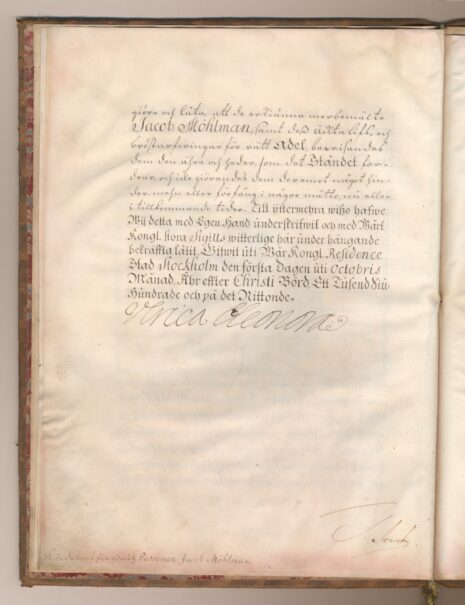 giöra och låta, att de erkiänna merbemälte
Jacob Möhlman, samt deß ächta lifs- och
bröstarfwingar för rätt Adel, bewisandes
dem den ähra och heder, som det Ståndet for-
drar, och icke giörandes dem deremot något hin-
der, mehn eller förfång i någor måtto, nu eller
i tillkommande tider. Till yttermehra wißo hafwe
Wij detta med Egen Hand underskrifwit och med Wårt
Kongl. stora Sigill witterlige här under hängande
bekräfftig låtit. Gifwit uti Wår Kongl. Residence
Stad Stockholm den första Dagen uti Octobris
Månad, Åhr effter Christi Börd Ett Tusend Siu
Hundrade och på det Nittonde.
Ulrica Eleonora
för Bruks Patronen Jacob Möhlman